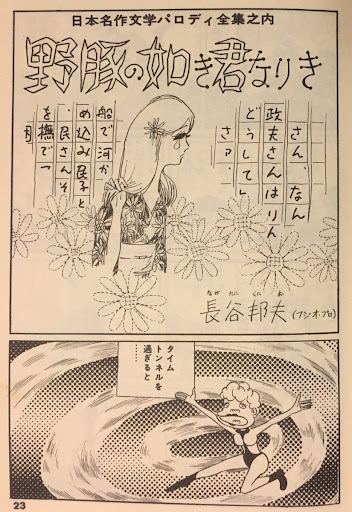 日本名作文学パロディ全集之内
野豚の如き君なりき
さん、なん
政夫さんはりん
どうして」
さァ、
船で河か
め込み民子と
、民さんそ
を撫でつ
なが たに くに お
長谷邦夫(フジオ・プロ)
タイム
トンネルを
過ぎると
……
23